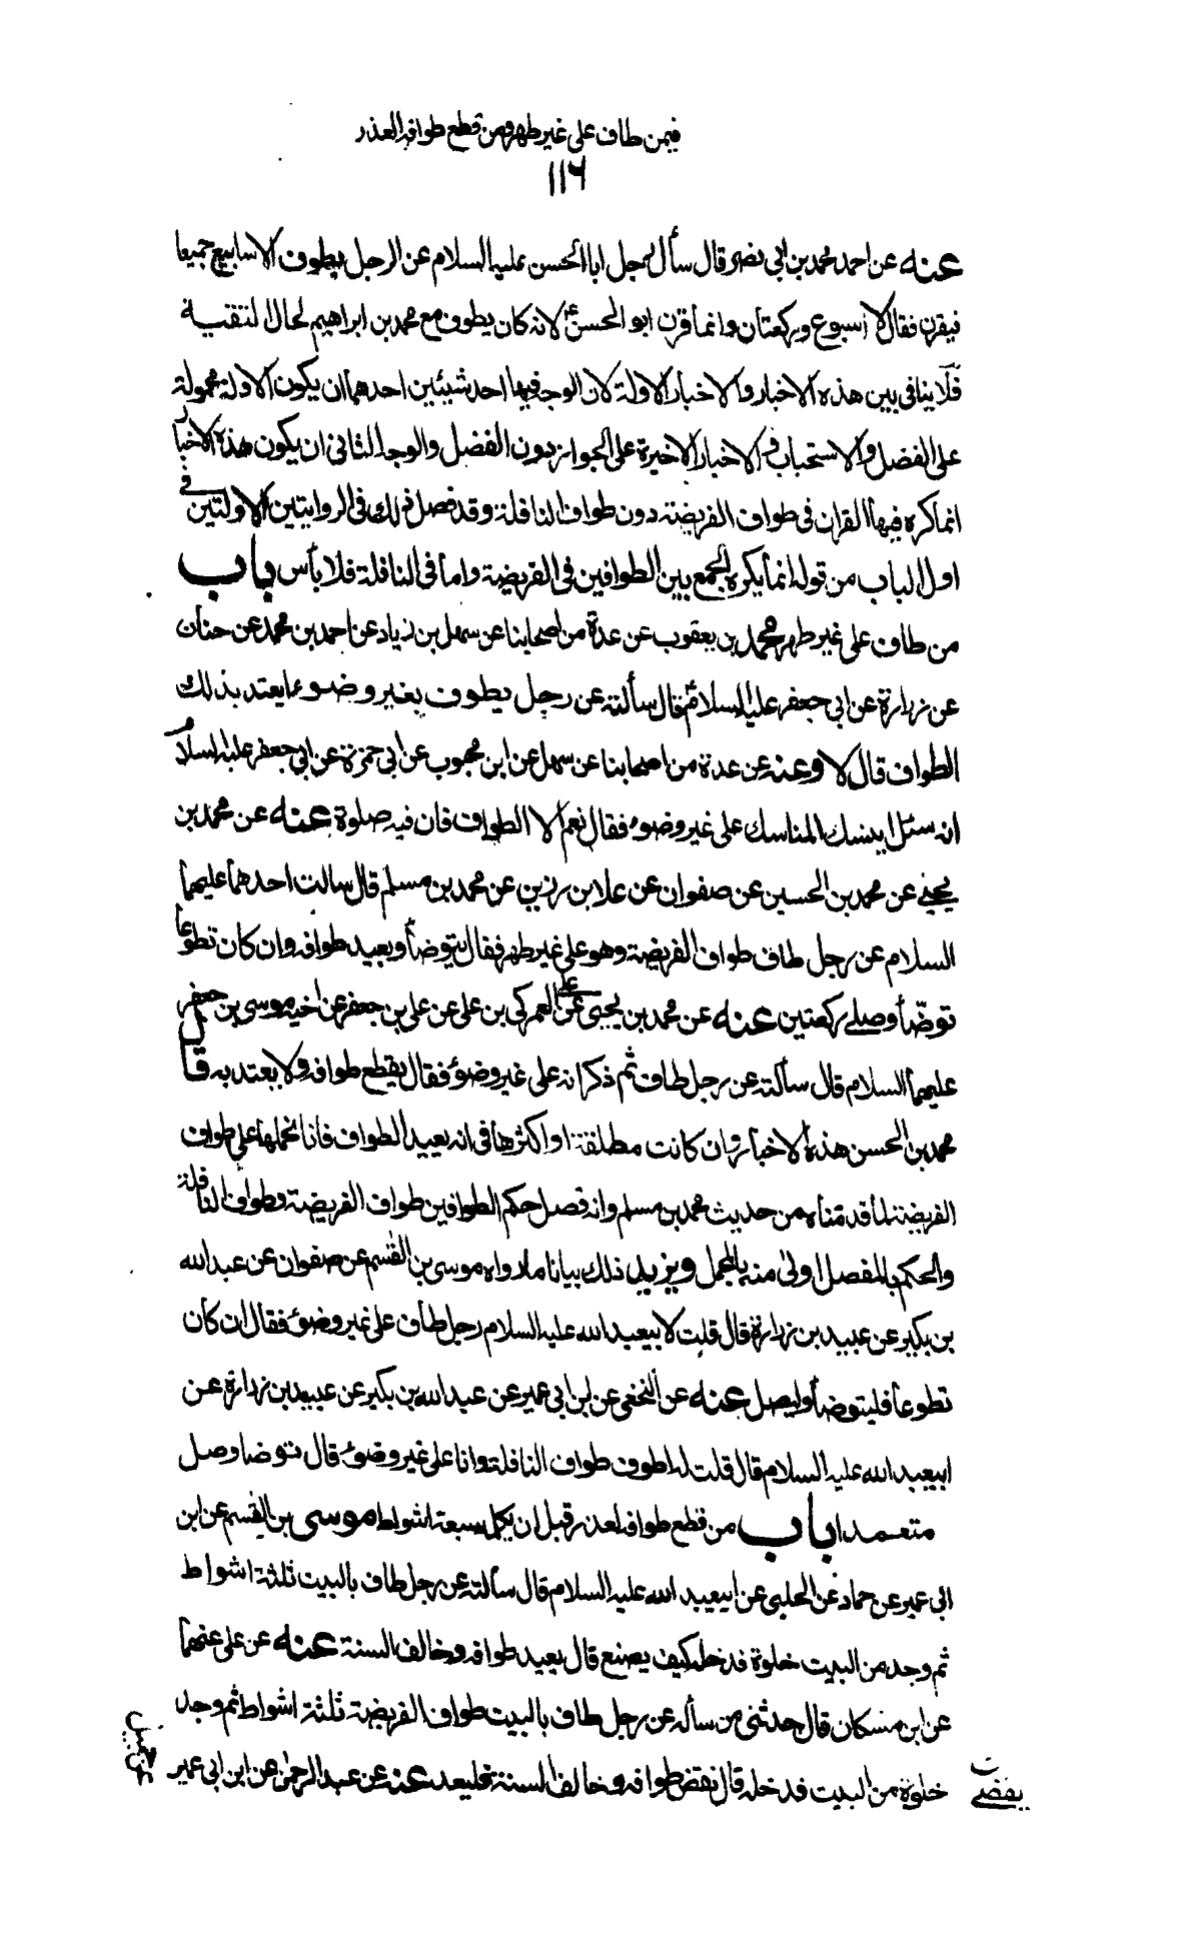 فيمن طاف على غير طهر ومن قطع طوافه العذر
١١٦
عنه عن احمد محمد بن ابى نصر قال سأل رجل ابا الحسن عليه السلام عن الرجل يطوف الاسابيع جميعا
فيقرن فقال لا اسبوع وركعتان وانما قرن ابو الحسن ع لانه كان يطوف مع محمد بن ابراهيم لحال التقية
فلا ينافى بين هذه الاخبار والاخبار الاولة لان الوجه فيها احد شيئين احدهما ان يكون الاولة محمولة
على الفضل والاستحباب و الاخبار الاخيرة على الجواز دون الفضل والوجه الثانى ان يكون هذه الاخبار
انما كره فيها القران فى طواف الفريضة دون طواف النافلة وقد فصل ذلك فى الروايتين الاولتين فى
اول الباب من قوله انما يكره الجمع بين الطوافين فى الفريضة واما فى النافلة فلا بأس باب
من طاف على غير طهر محمد بن يعقوب عن عدة من اصحابنا عن سهل بن زياد عن احمد بن محمد عن حنان
عن زرارة عن ابى جعفر عليه السلام قال سألته عن رجل يطوف بغير وضوء ايعتد بذلك
الطواف قال لا وعنه عن عدة من اصحابنا عن سهل عن ابن محبوب عن ابى حمزة عن ابى جعفر عليه السلام
انه سئل اينسك المناسك على غير وضوء فقال نعم الا الطواف فان فيه صلوة عنه عن محمد بن
يحيى عن محمد بن الحسين عن صفوان عن علا بن رزين عن محمد بن مسلم قال سالت احدهما عليهما
السلام عن رجل طاف طواف الفريضة وهو على غير طهر فقال يتوضأ ويعيد طوافه وان كان تطوعا
توضأ وصلى ركعتين عنه عن محمد بن يحيى عن العمركى بن على عن على بن جعفر عن اخيه موسى بن جعفر
عليهما السلام قال سألته عن رجل طاف ثم ذكر انه على غير وضوء فقال يقطع طوافه ولا يعتد به قال
محمد بن الحسن هذه الاخبار وان كانت مطلقة او اكثرها فى انه يعيد الطواف فانا نحملها على طواف
الفريضة لما قدمناه من حديث محمد بن مسلم وانه فصل حكم الطوافين طواف الفريضة وطواف النافلة
والحكم بالمفصل اولى منه بالمجمل ويزيد ذلك بيانا ما رواه موسى بن القسم عن صفوان عن عبدالله
بن بكير عن عبيد بن زرارة قال قلت لابيعبد الله عليه السلام رجل طاف على غير وضوء فقال ان كان
تطوعا فليتوضأ وليصل عنه عن النخعى عن ابن ابى عمير عن عبد الله بن بكير عن عبيد بن زرارة عن
ابيعبد الله عليه السلام قال قلت له اطوف طواف النافلة وانا على غير وضوء قال توضا وصل
متعمدا باب من قطع طوافه لعذر قبل ان يكمل سبعة اشواط موسى بن القسم عن ابن
ابى عمير عن حماد عن الحلبى عن ابيعبد الله عليه السلام قال سألته عن رجل طاف بالبيت ثلثة اشواط
ثم وجد من البيت خلوة فدخله كيف يصنع قال يعيد طوافه وخالف السنة عنه عن على عنهما
عن ابن مسكان قال حدثنى من سأله عن رجل طاف بالبيت طواف الفريضة ثلثة اشواط ثم وجد
خلوة من البيت فدخله قال نقض طوافه وخالف السنة فليعد عنه عن عبد الرحمن عن ابن ابى عمير
يقضى